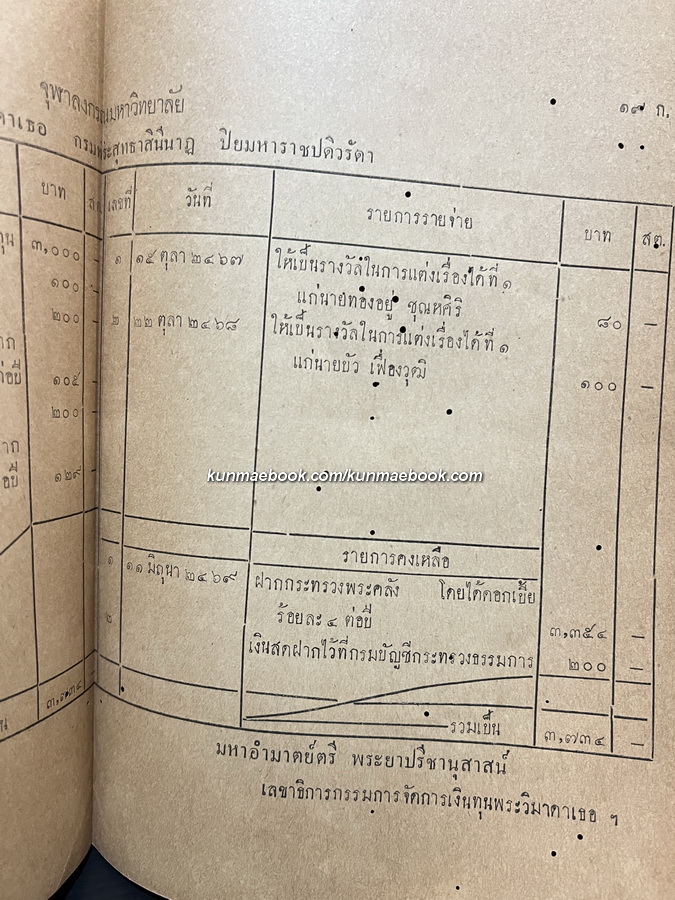 จุฬาลงกรณมหาวิทยาลัย
๑๙ ก.
าดาเธอ กรมพระสุทธาสินีนาฏ ปิยมหาราชปดิวรัดา
บาท สต. เลขที่ วันที่ รายการรายจ่าย บาท สต.
๓,๐๐๐ ๑ ๑๕ ตุลา ๒๔๖๗ ให้เป็นรางวัลในการแต่งเรื่องได้ที่ ๑
๑๐๐ แก่นายทองอยู่ ชุณหศิริ ๘๐ —
๒๐๐ ๒ ๒๒ ตุลา ๒๔๖๘ ให้เป็นรางวัลในการแต่งเรื่องได้ที่ ๑
๑๐๕ แก่นายบัว เฟื่องวุฒิ ๑๐๐ —
๒๐๐
๑๒๙
kunmaebook.com/kunmaebook.com
รายการคงเหลือ
๑ ๑๑ มิถุนา ๒๔๖๙ ฝากกระทรวงพระคลัง โดยได้ดอกเบี้ย
ร้อยละ ๔ ต่อปี ๓,๓๕๔ —
๒ เงินสดฝากไว้ที่กรมบัญชีกระทรวงธรรมการ ๒๐๐ —
๓,๗๓๔ รวมเป็น ๓,๗๓๔ —
มหาอำมาตย์ตรี พระยาปรีชานุสาสน์
เลขาธิการกรรมการจัดการเงินทุนพระวิมาดาเธอ ฯ